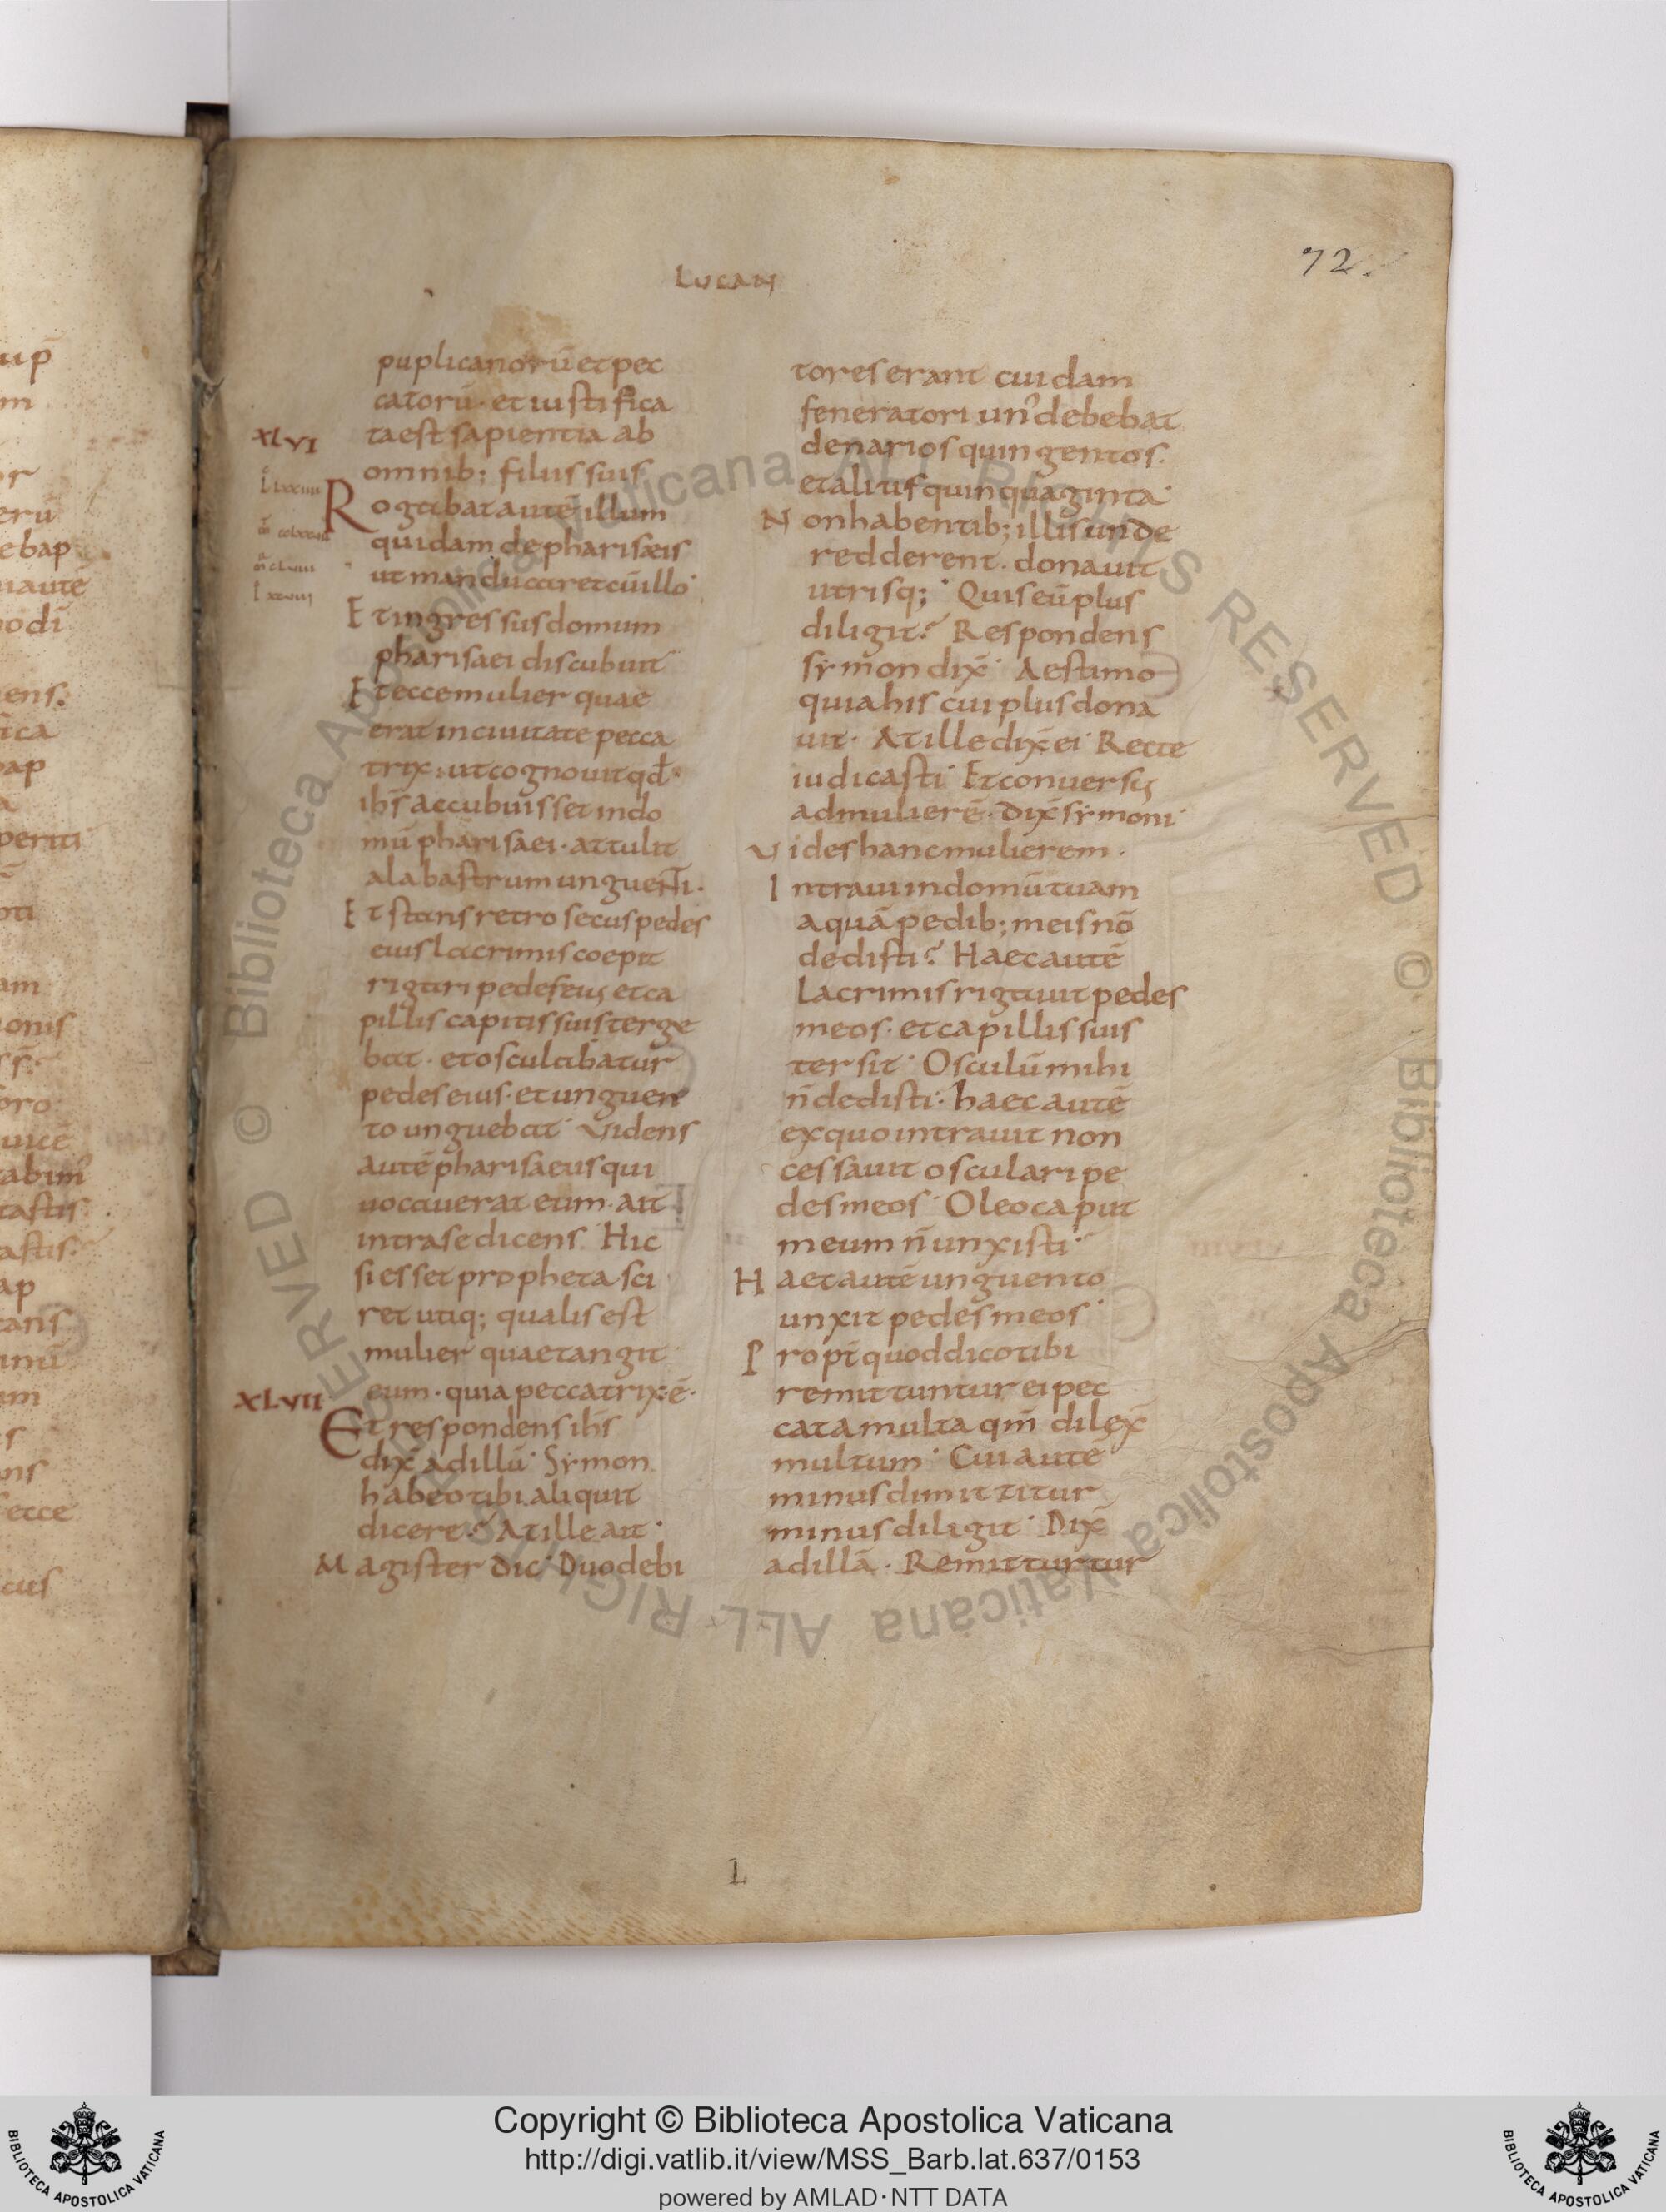 LUCAN
72.
puplicanorū et pec
catorū· et iustifica
XLVI
ta est sapientia ab
omnib; filiis suis
Rogabat autē illum
quidam de pharisaeis
ut manducaret cū illo·
Et ingressus domum
pharisaei discubuit
Et ecce mulier quae
erat in ciuitate pecca
trix· ut cognouit qđ·
ihs̄ accubuisset in do
mū pharisaei· attulit
alabastrum unguenti·
Et stans retro secus pedes
eius lacrimis coepit
rigari pedes eius et ca
pillis capitis suis terge
bat· et osculabatur
pedes eius· et unguen
to unguebat· Uidens
autē pharisaeus qui
uocauerat eum· ait
intra se dicens Hic
si esset propheta sci
ret utiq; qualis est
mulier quae tangit
eum· quia peccatrix ē·
XLVII
Et respondens ihs̄
dix̄ ad illū· Symon
habeo tibi aliquit
dicere· At ille ait·
Magister dic· Duo debi
tores erant cuidam
feneratori un' debebat
denarios quingentos·
et alius quinquaginta·
Non habentib; illis unde
redderent· donauit
utrisq;· Quis eū plus
diligit? Respondens
symon dix̄· Aestimo
quia his cui plus dona
uit· At ille dix̄ ei· Recte
iudicasti· Et conuersus
ad mulierē· dix̄ symoni·
Uides hanc mulierem·
Intraui in domū tuam
aquā pedib; meis nō
dedisti? Haec autē
lacrimis rigauit pedes
meos· et capillis suis
tersit· Osculū mihi
n̄ dedisti· haec autē
ex quo intrauit non
cessauit osculari pe
des meos· Oleo caput
meum n̄ unxisti·
Haec autē unguento
unxit pedes meos·
Propt̄ quod dico tibi
remittuntur ei pec
cata multa qm̄ dilex̄
multum· Cui autē
minus dimittitur
minus diligit· Dix̄
ad illā· Remitturtur
L
Copyright © Biblioteca Apostolica Vaticana
http://digi.vatlib.it/view/MSS_Barb.lat.637/0153
powered by AMLAD·NTT DATA
BIBLIOTECA APOSTOLICA VATICANA
BIBLIOTECA APOSTOLICA VATICANA